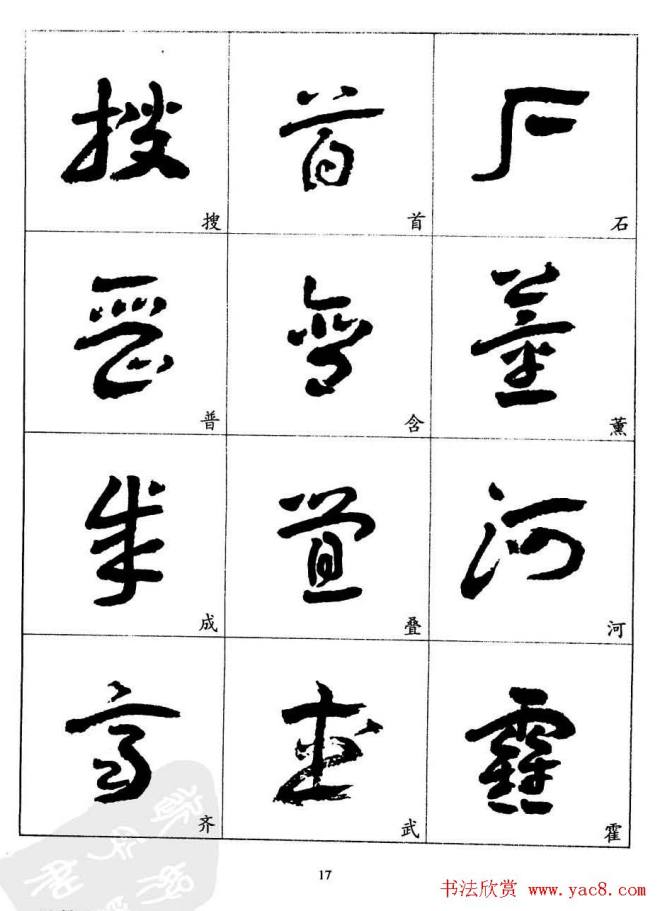 搜 首 石
普 含 薰
成 叠 河
齐 武 霍
17
书法欣赏 www.yac8.com